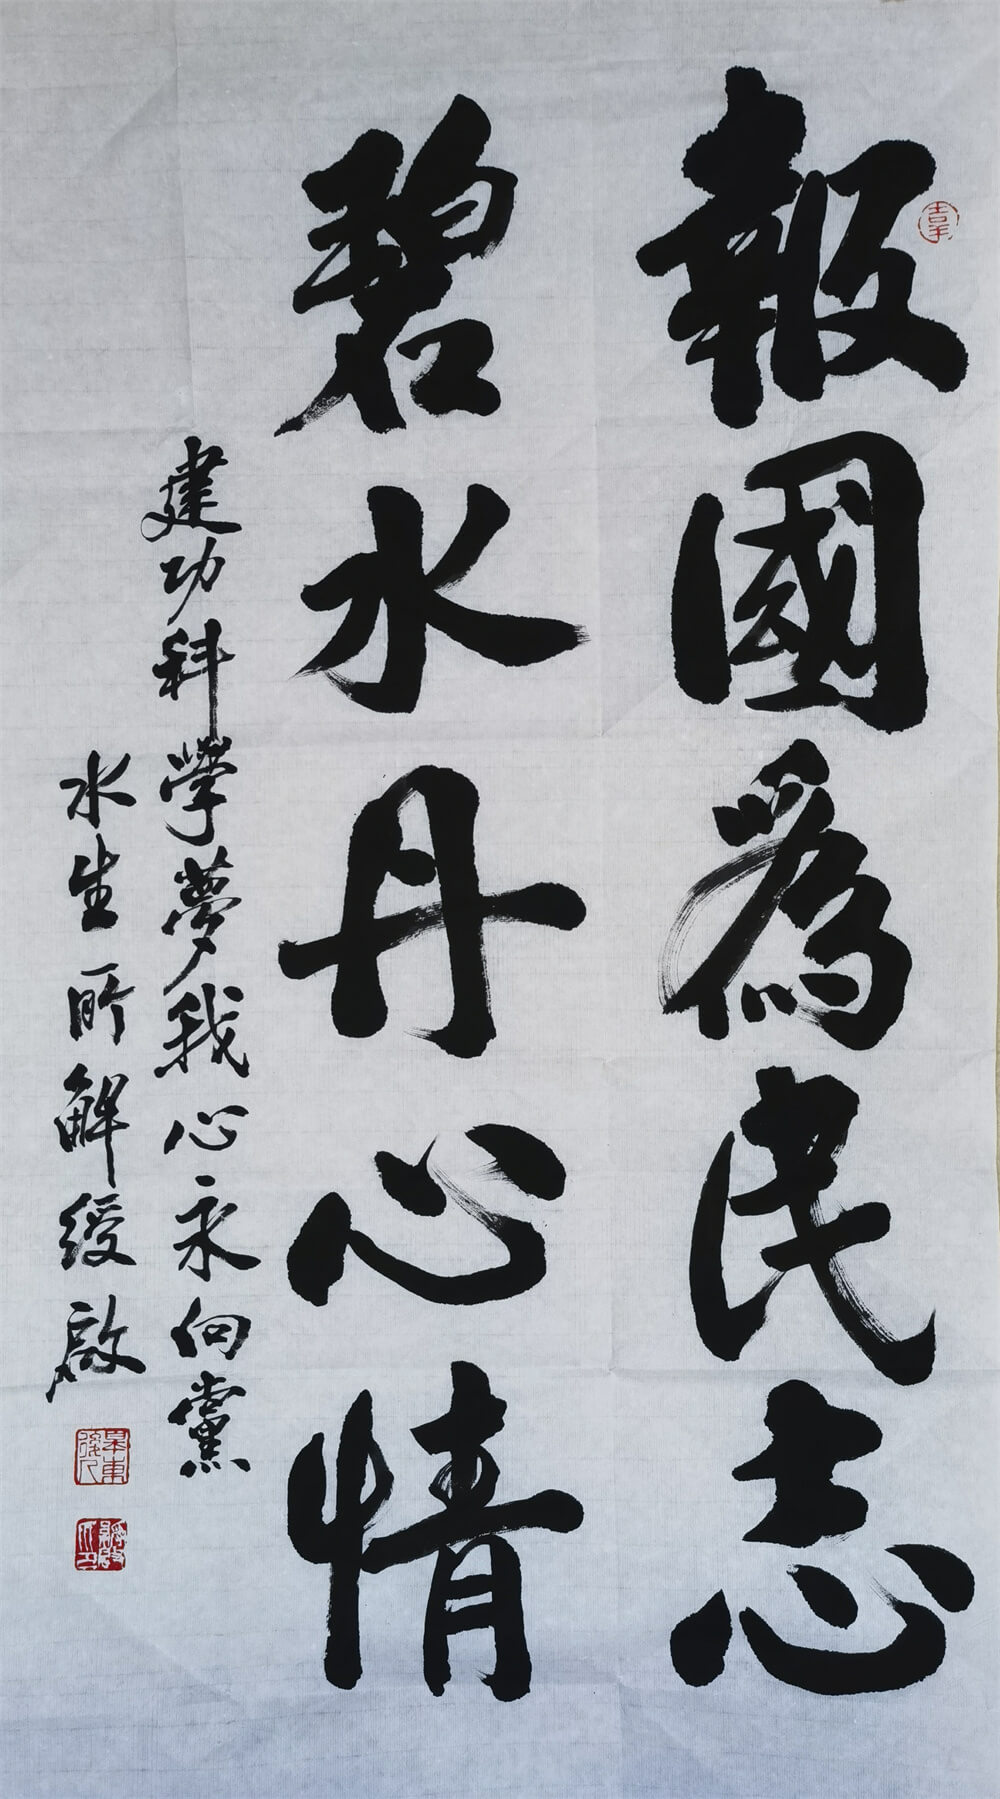 報國為民志
碧水丹心情
建功科學夢我心永向黨
水生所解綬啟